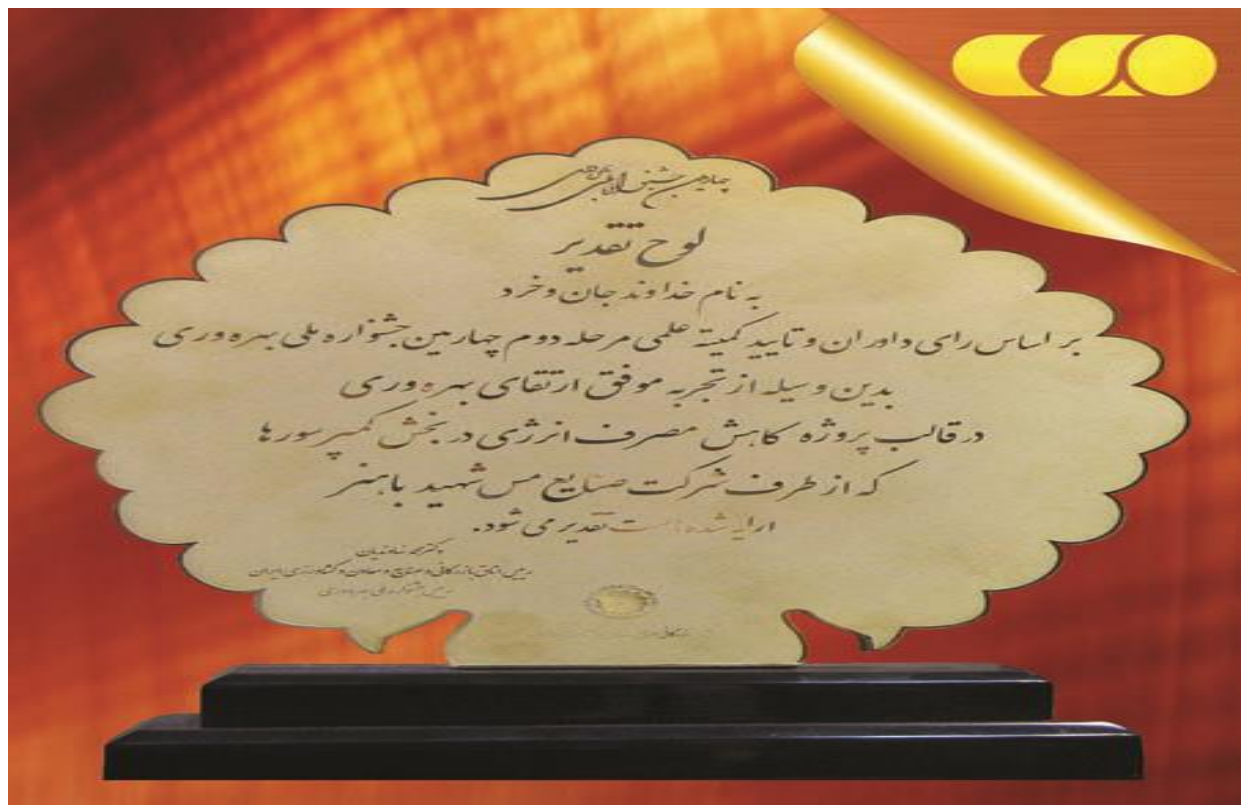 چهارمین جشنواره ملی بهره وری
لوح تقدیر
به نام خداوند جان و خرد
بر اساس رای داوران و تایید کمیتۀ علمی مرحله دوم چهارمین جشنواره ملی بهره وری
بدین وسیله از تجربه موفق ارتقای بهره وری
در قالب پروژه کاهش مصرف انرژی در بخش کمپرسورها
که از طرف شرکت صنایع مس شهید باهنر
ارایه شده است تقدیر می شود.
دکتر محمد نهاوندیان
رییس اتاق بازرگانی و صنایع و معادن و کشاورزی ایران
رییس جشنواره ملی بهره وری